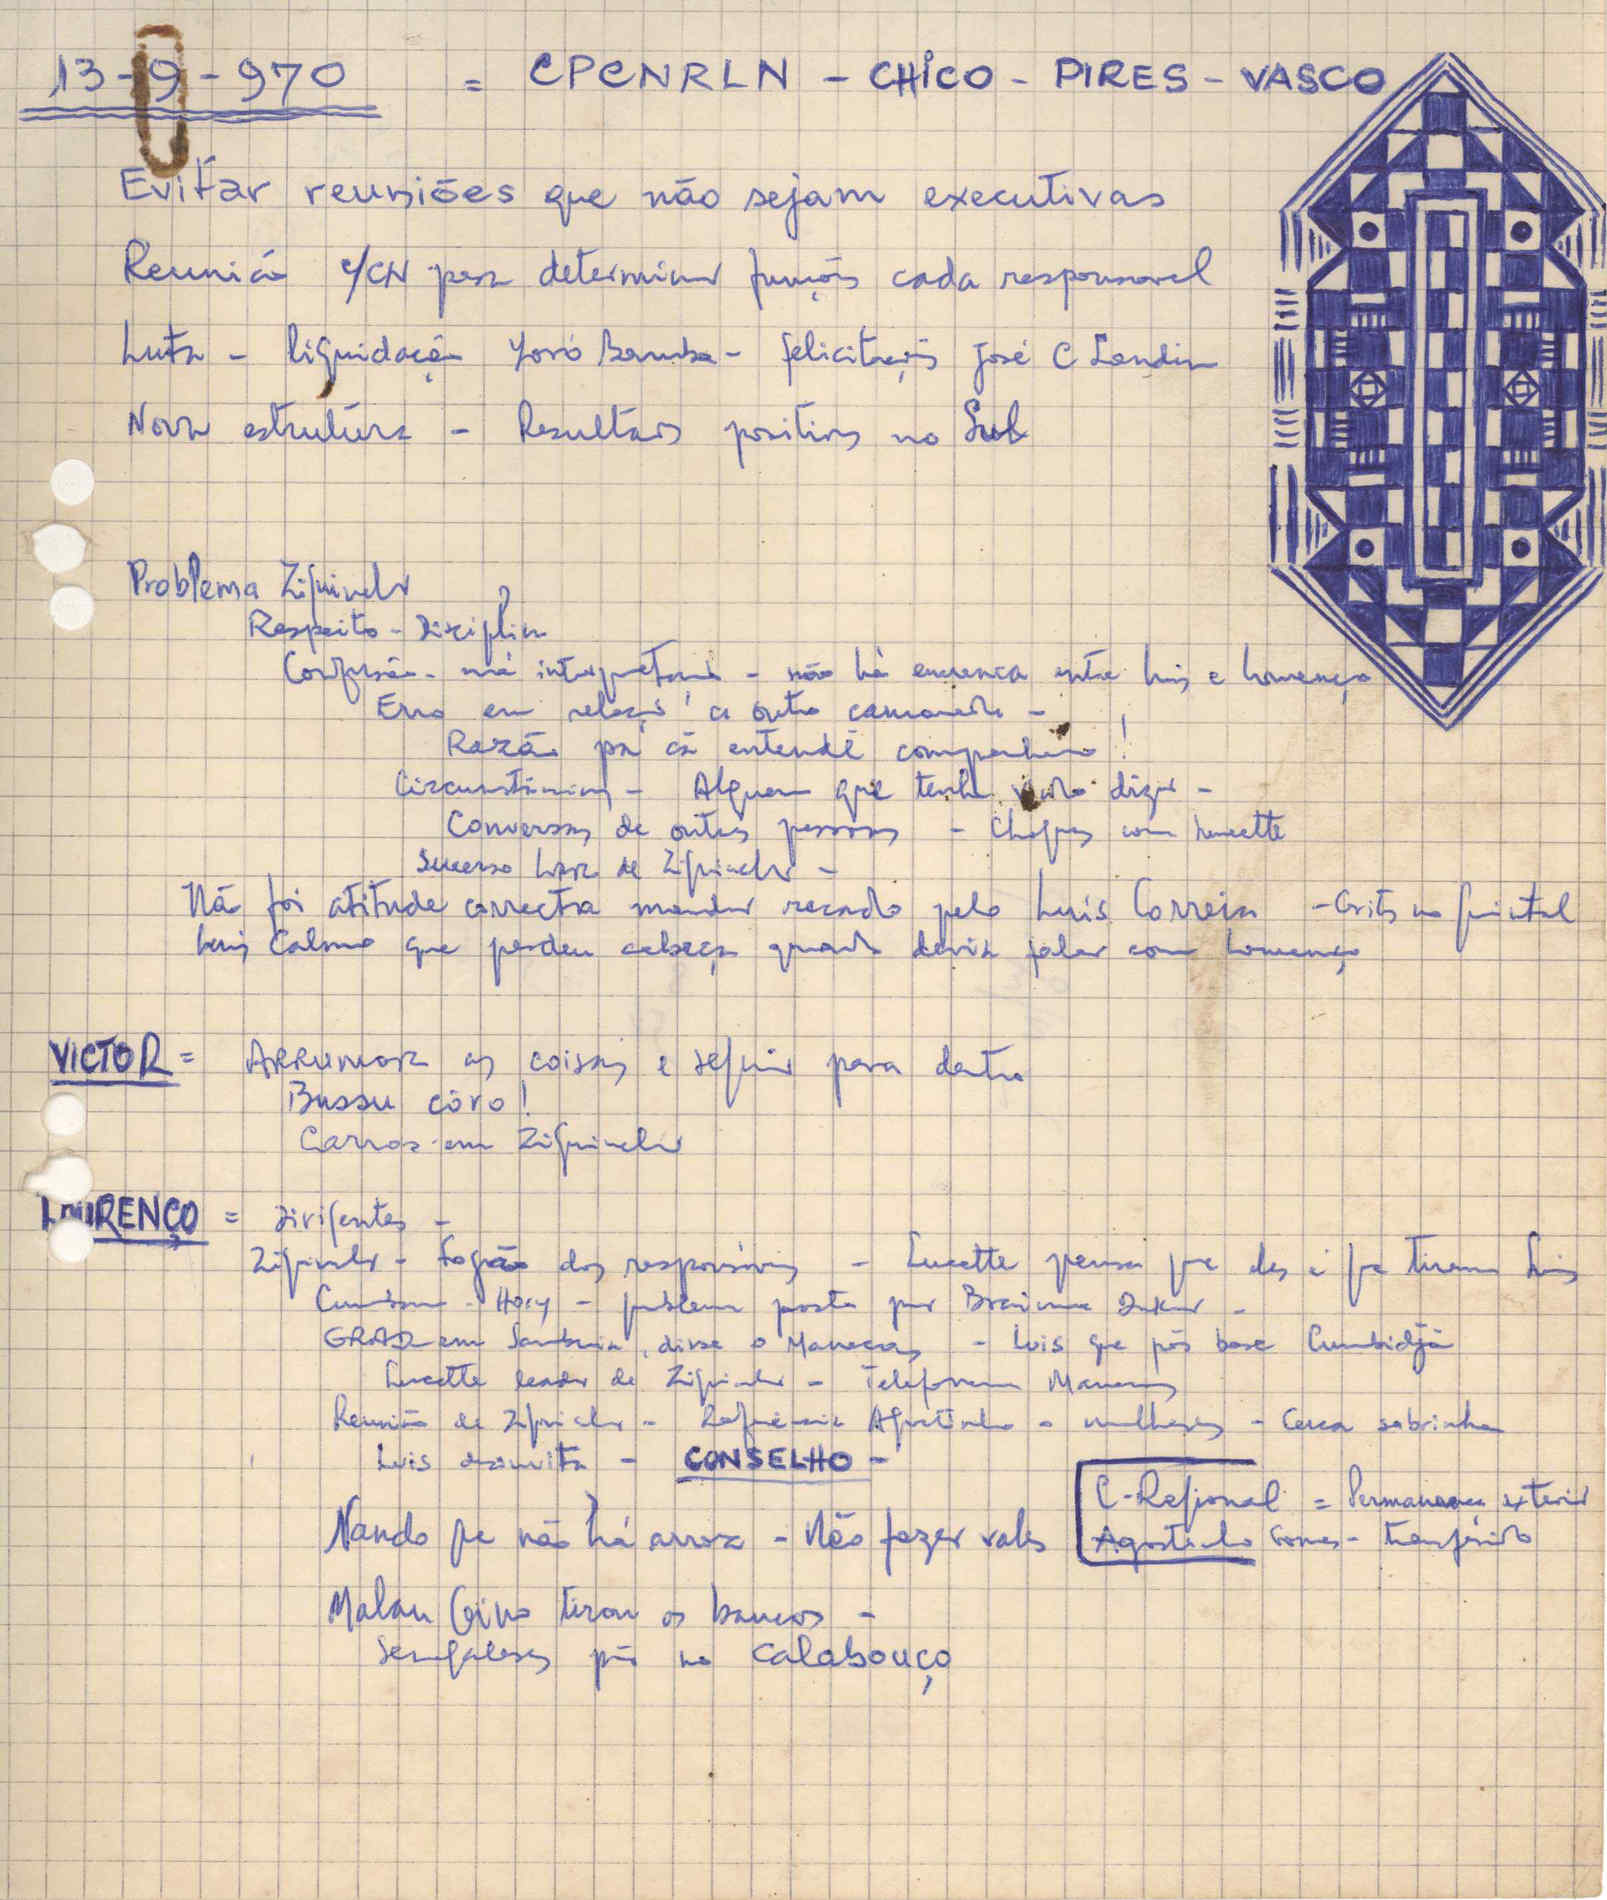 13-9-970 = CPCNRLN - CHICO - PIRES - VASCO
Evitar reuniões que não sejam executivas
Reunião c/CN para determinar funções cada responsavel
Luta - liquidação Yoro Bamba - felicitações José C Landim
Nova estrutura - Resultados positivos no Sul
Problema Ziguinchor
Respeito - Disciplina
Confusão - má interpretação - não há encrenca entre Luis e Lourenço
Erro em relação a outro camarada -
Razão pa cá entendê companheiro!
Circunstâncias - Alguem que tenha dizer -
Conversas de outras pessoas - Choques com Lucette
Sucesso Lar de Ziguinchor -
Não foi atitude correcta mandar recado pelo Luis Correia - Gritos no quintal
Luis Calmo que perdeu cabeça quando devia falar com Lourenço
VICTOR = Arrumar as coisas e seguir para dentro
Bussu côro!
Carros em Ziguinchor
LOURENÇO = Dirigentes -
Ziguinchor - Fogão dos responsáveis - Lucette pensa que eles é que tiram Luis
- problema posto por
em , disse o Manecas - Luis que pôs base Cumbidjã
Lucette leader de Ziguinchor - Manecas
Reunião de Ziguinchor - Agostinho - mulheres - sobrinha
Luis - CONSELHO -
C-Regional = Permanencia exterior
Nando que não há arroz - Não fazer vales
Agostinho Gomes - transferido
Malan Gino tirou os bancos -
Senegaleses pôs no calabouço